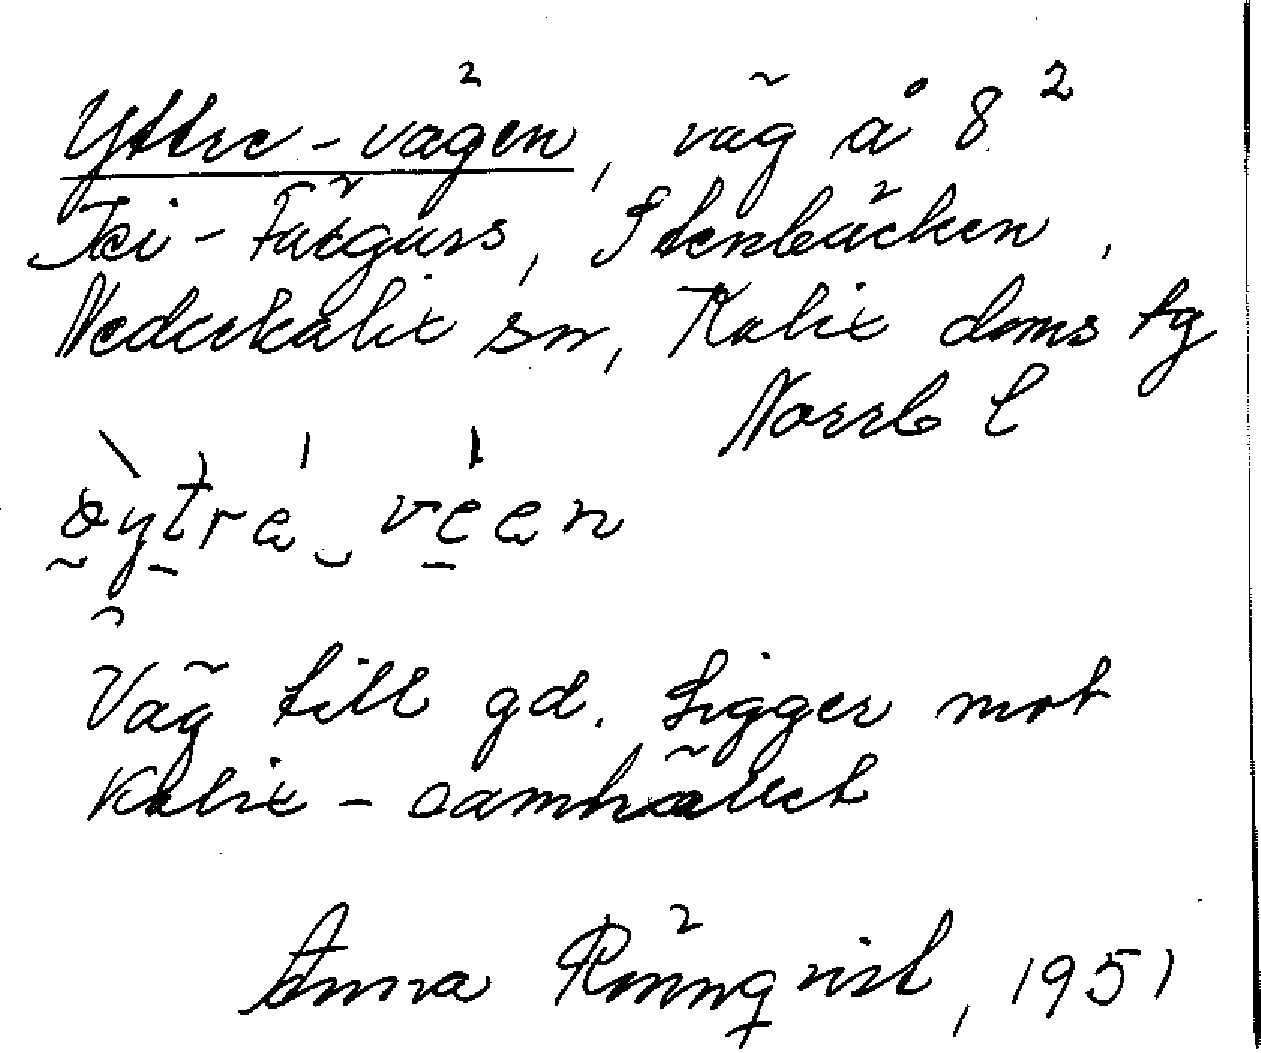 Yttre-vägen, väg å 8²
Jei-Färgars, Stenbäcken,
Nederkalix sn, Kalix doms tg
Norrb l
öytra veen
Väg till gd. Ligger mot
Kalix-samhället
Anna Rönnqvist, 1951